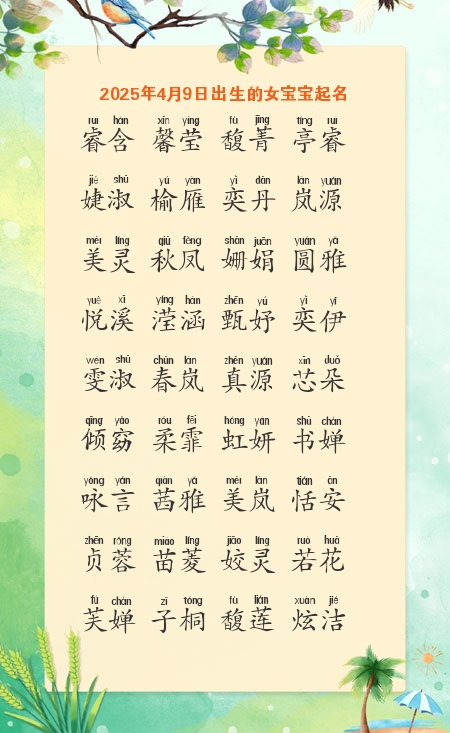 2025年4月9日出生的女宝宝起名
ruì hán xīn yíng fù jīng tíng ruì
睿含 馨莹 馥菁 亭睿
jié shū yú yàn yì dān lán yuán
婕淑 榆雁 奕丹 岚源
měi líng qiū fèng shān juān yuán yǎ
美灵 秋凤 姗娟 圆雅
yuè xī yíng hán zhēn yú yì yī
悦溪 滢涵 甄妤 奕伊
wén shū chūn lán zhēn yuán xīn duǒ
雯淑 春岚 真源 芯朵
qīng yǎo róu fēi hóng yán shū chán
倾窈 柔霏 虹妍 书婵
yǒng yán qiàn yǎ měi lán tián ān
咏言 茜雅 美岚 恬安
zhēn róng miáo líng jiāo líng ruò huā
贞蓉 苗菱 姣灵 若花
fú chán zǐ tóng fù lián xuàn jié
芙婵 子桐 馥莲 炫洁